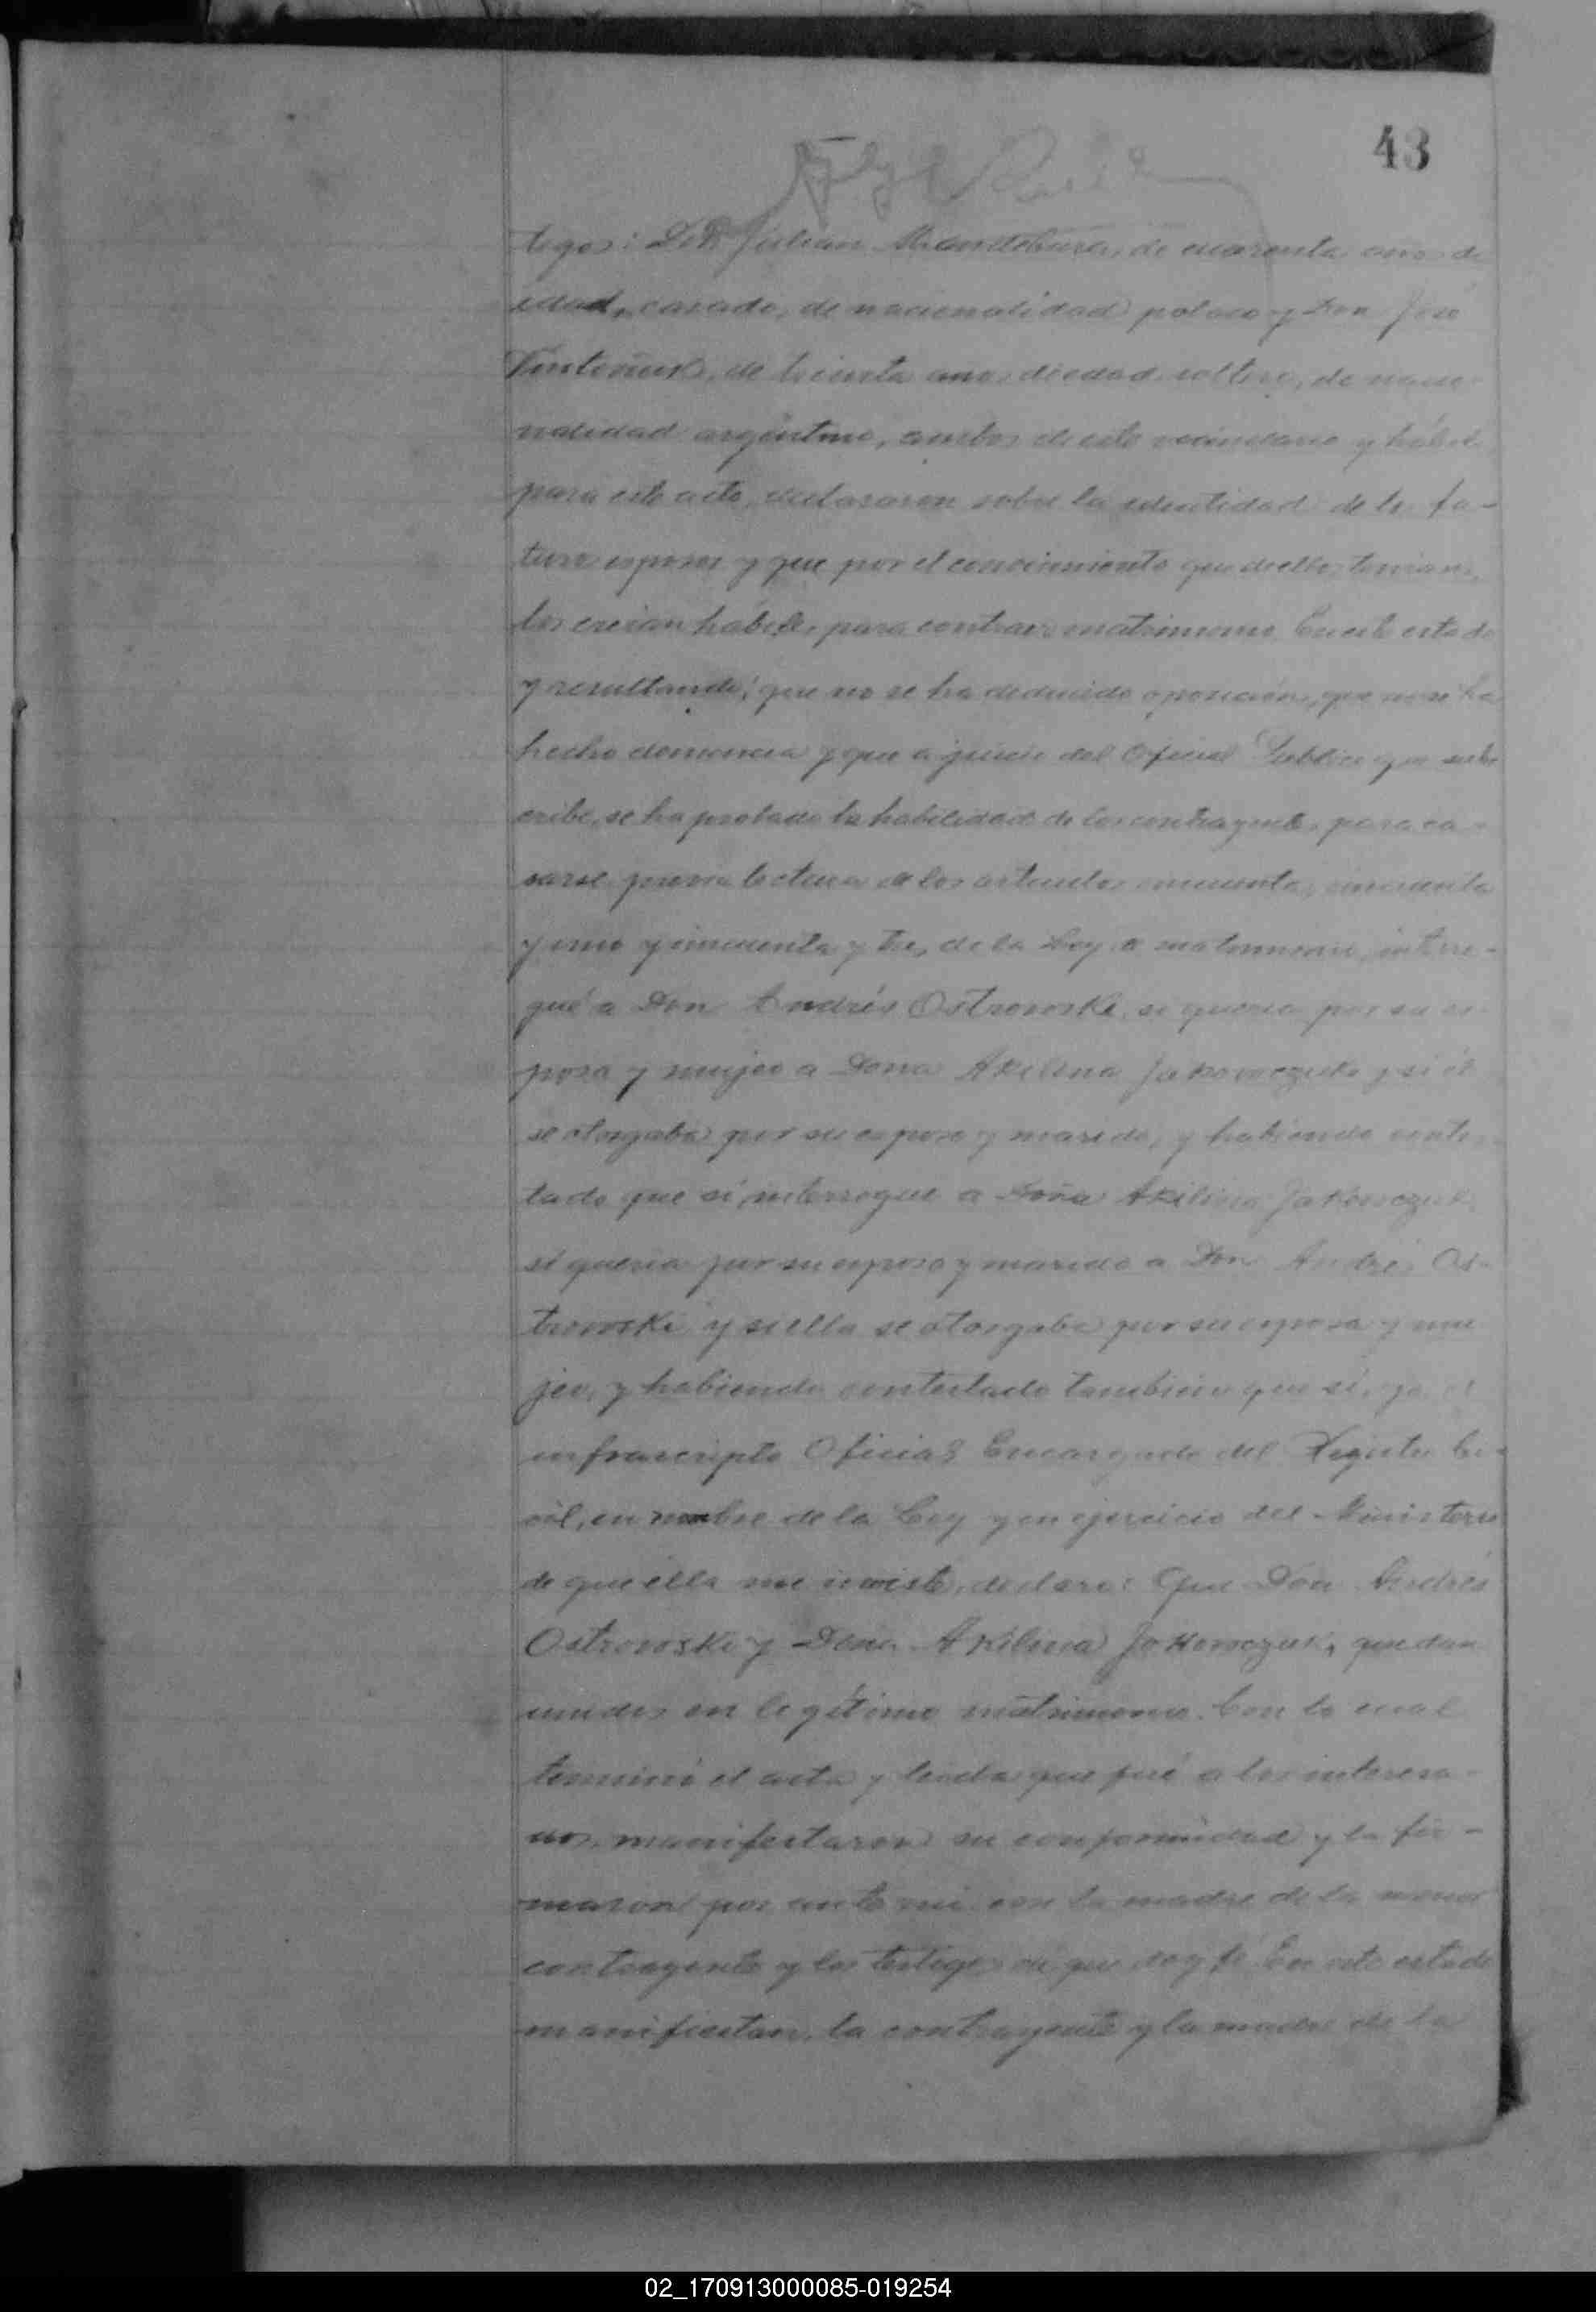 43
tigos: Don Julian de cuarenta años de
edad, casado, de nacionalidad polaco y Don José
de treinta años de edad, soltero, de nacio-
nalidad argentino, ambos de este vecindario y hábiles
para este acto, declararon sobre la identidad de los fu-
turos esposos y que por el conocimiento que de ellos tenían,
los creían hábiles para contraer matrimonio. En este estado
y resultando: que no se ha deducido oposición, que no se ha
hecho denuncia y que a juicio del Oficial Público que subs
cribe, se ha probado la habilidad de los contrayentes para ca-
sarse previa lectura de los artículos cincuenta, cincuenta
y uno y cincuenta y tres de la Ley de matrimonio, interro-
gué a Don Andrés Ostrowski, si quería por su es-
posa y mujer a Doña Akilina Jakowczuk y si él
se otorgaba por su esposo y marido, y habiendo contes-
tado que sí, interrogue a Doña Akilina Jakowczuk
si quería por su esposo y marido a Don Andrés Os-
trowski y si ella se otorgaba por su esposa y mu
jer, y habiendo contestado también que sí, yo el
infrascripto Oficial Encargado del Registro Ci-
vil, en nombre de la Ley y en ejercicio del Ministerio
de que ella me inviste, declaro: Que Don Andrés
Ostrowski y Doña Akilina Jakowczuk, quedan
unidos en legítimo matrimonio. Con lo cual
terminó el acta y leída que fué a los interesa-
dos, manifestaron su conformidad y la fir-
maron por ante mi con la madre de la menor
contrayente y los testigos de que doy fé. En este estado
manifiestan, la contrayente y la madre de la
02_170913000085-019254